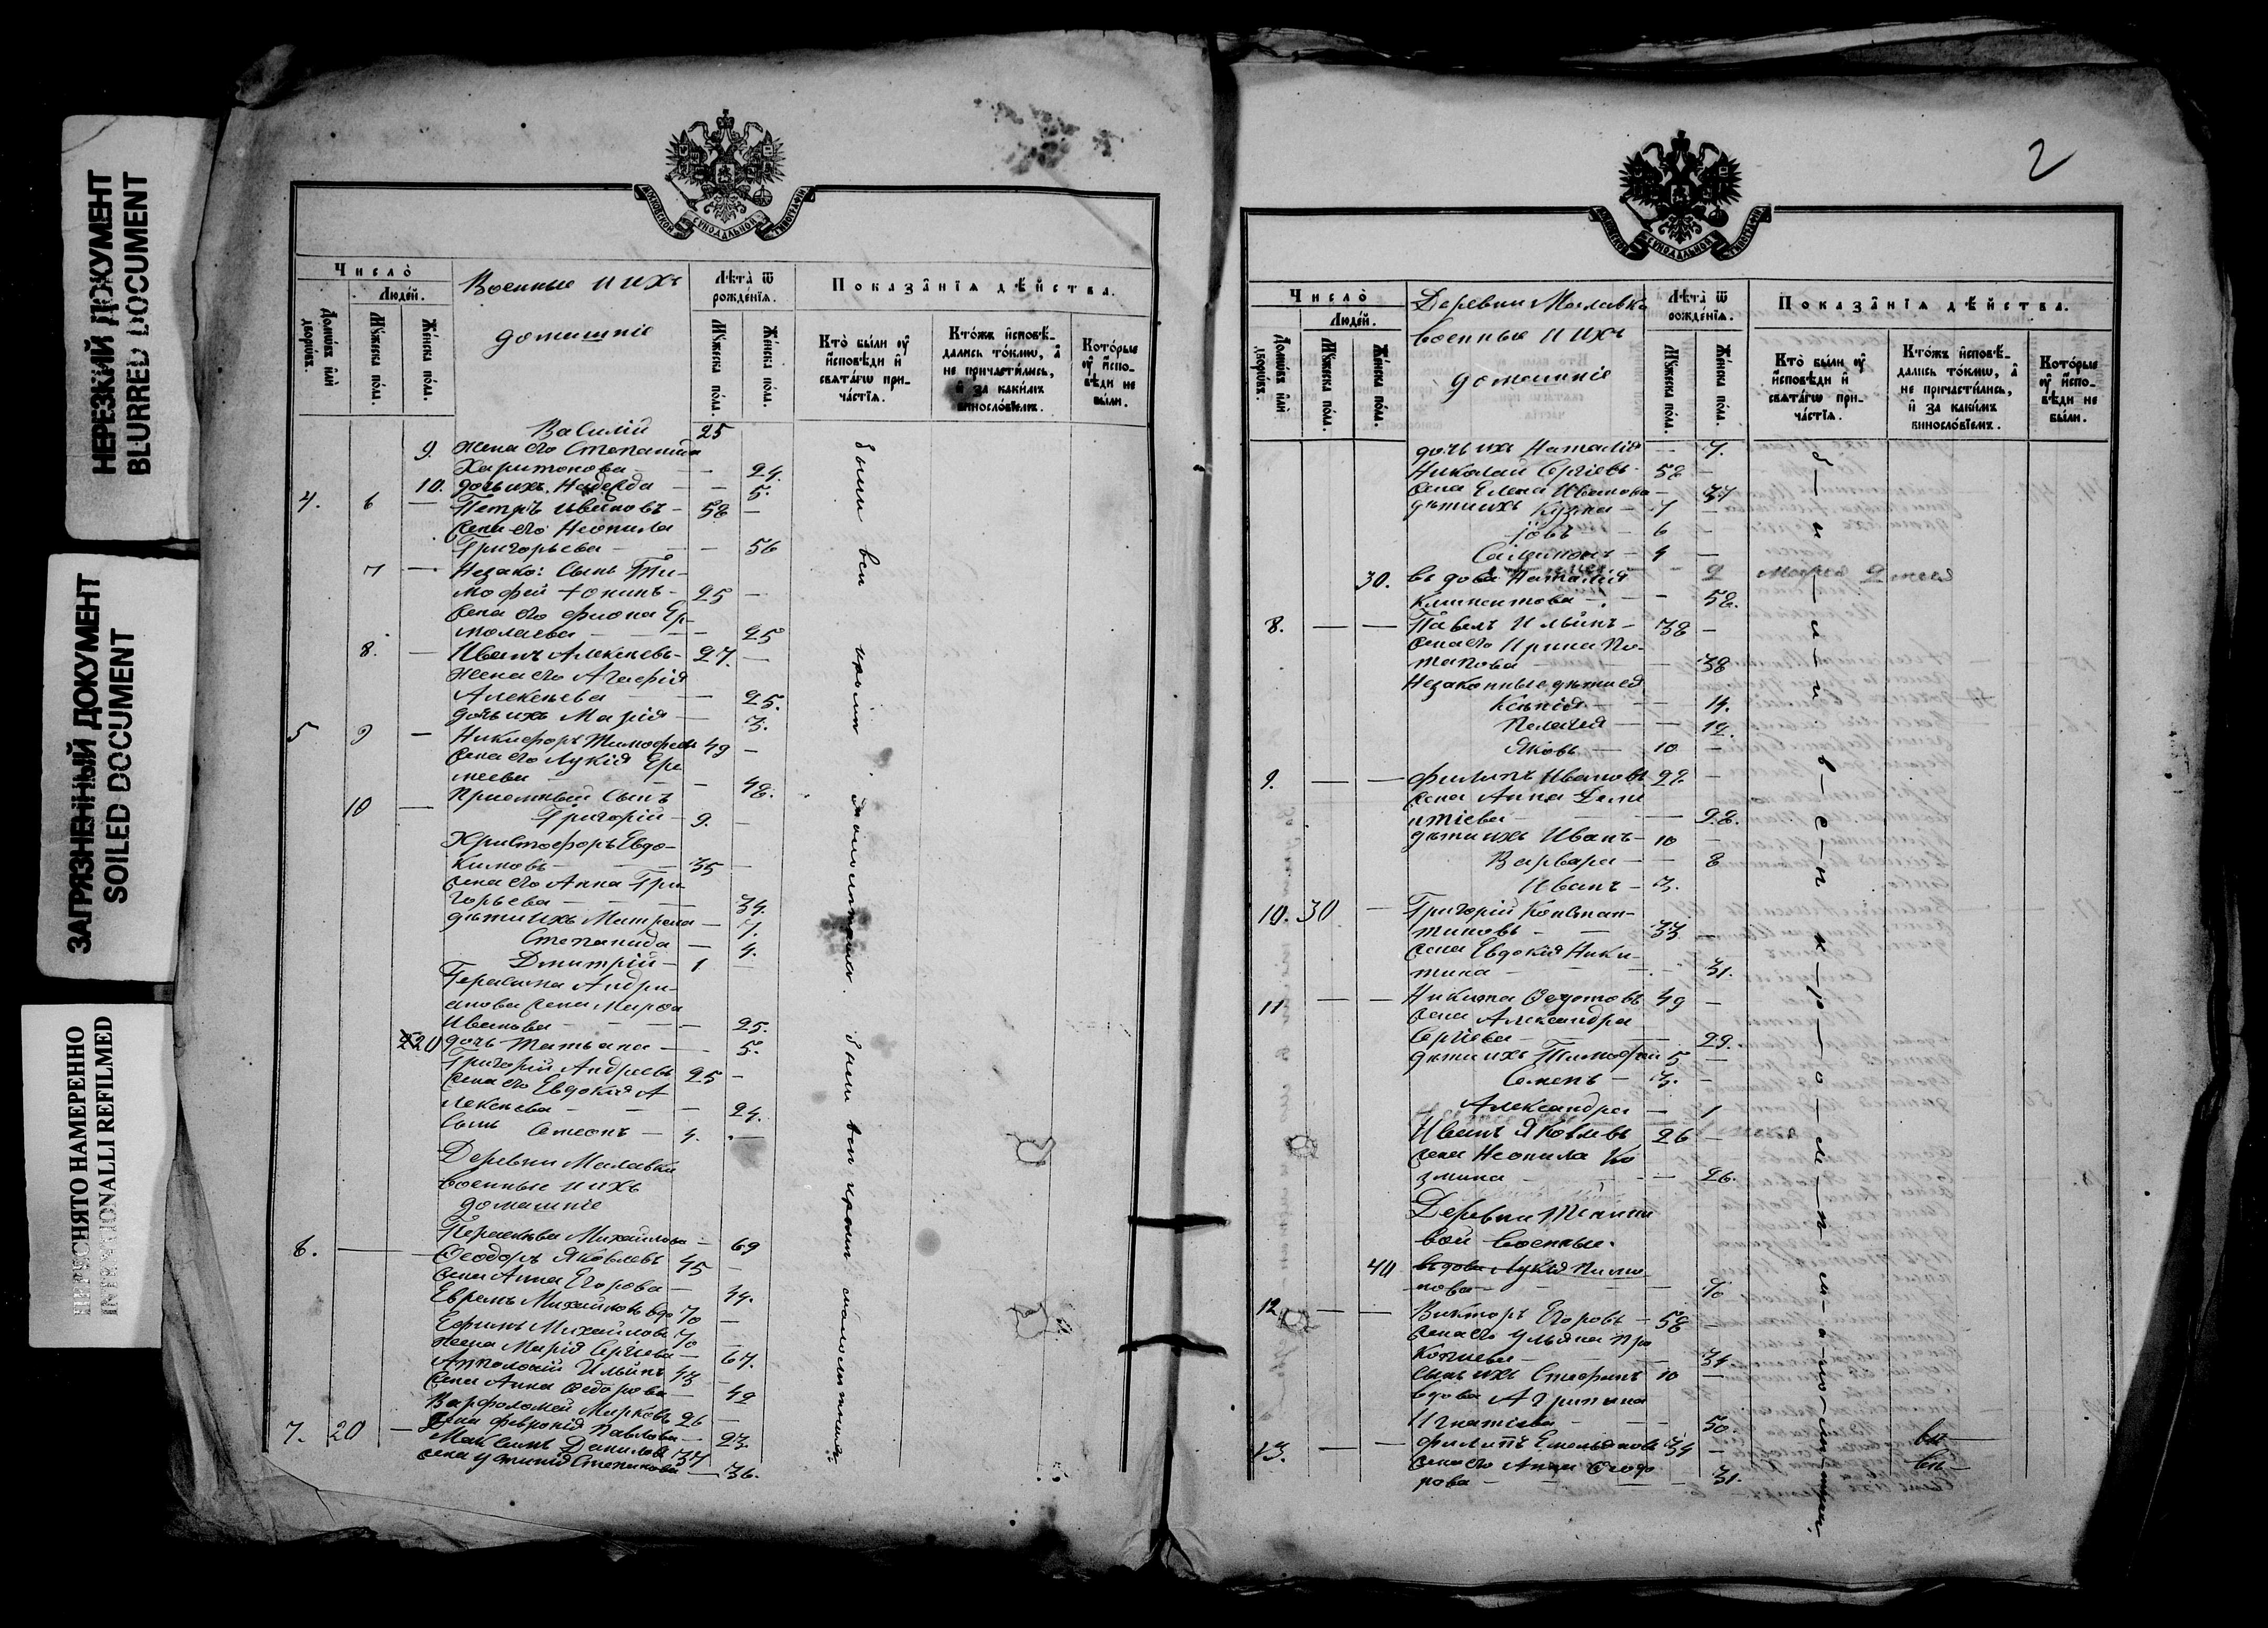 НЕРЕЗКИЙ ДОКУМЕНТ
BLURRED DOCUMENT
ЗАГРЯЗНЕННЫЙ ДОКУМЕНТ
SOILED DOCUMENT
ПЕРЕСНЯТО НАМЕРЕННО
INTENTIONALLI REFILMED
МОСКОВСКОЙ СУНОДАЛЬНОЙ ТИПОГРАФІИ
Число̀
Людей.
Домѡвъ или дворѡвъ.
Мꙋжеска пола.
Женска пола.
Военные и ихъ
домашніе
Лѣта ѿ рожденїѧ.
Мꙋжеска пола.
Женска пола.
Показанїѧ дѣйства.
Кто были ꙋ
исповѣди и
свѧтагѡ при-
частїѧ.
Ктожъ исповѣ-
дались токмѡ, а
не причастились,
и за какимъ
винословїемъ.
Которые
ꙋ испо-
вѣди не
были.
Василій 25
9. жена его Степанида
Харитонова — — 24.
10. дочь их Надежда — — 5.
4. 6 — Петръ Ивановъ — 58 —
жена его Неонила
Григорьева — — 56
7 — Незако: сынъ Ти-
мофей — 25 —
жена его Фиона Ер-
молаева — — 25
8. — Иванъ Алексѣевъ — 27. —
жена его Агафія
Алексѣева — — 25.
дочь ихъ Марія — — 3.
5 9 — Никифоръ Тимофеевъ 49 —
жена его Лукія Ере
меева — — 48.
10 — приемный сынъ
Григорій — 9. —
Христофоръ Евдо-
кимовъ — 35 —
жена его Анна Гри
горьева — — 34.
дѣти ихъ Матрона — 7.
Степанида — 4.
Дмитрій — 1 —
Герасима Андри-
анова жена Марфа
Иванова — — 25.
20 дочь Татьяна — — 5.
Григорій Андреевъ 25 —
жена его Евдокія А
лексѣева — — 24.
сынъ Симеонъ — 4. —
Деревни Малавки
военные и ихъ
домашніе
Параскева Михайлова — 69
6. — Ѳеодоръ Яковлевъ 45 —
жена Анна Егорова — 44.
Евремъ Михайловъ вдо 70 —
Ефимъ Михайловъ 70 —
жена Марія Сергіева — 67.
Апполоній Ильинъ 43 —
жена Анна Ѳедорова — 42
Варфоломей Марковъ 26 —
7. 20 — жена Февронія Павлова — 23.
Максимъ Даниловъ 37
жена Устинія Степанова — 36.
были вси кромѣ малолѣтныхъ. были вси кромѣ малолѣтныхъ.
2
МОСКОВСКОЙ СУНОДАЛЬНОЙ ТИПОГРАФІИ
Число̀
Людей.
Домѡвъ или дворѡвъ.
Мꙋжеска пола.
Женска пола.
Деревни Малавки
военные и ихъ
домашніе
Лѣта ѿ рожденїѧ.
Мꙋжеска пола.
Женска пола.
Показанїѧ дѣйства.
Кто были ꙋ
исповѣди и
свѧтагѡ при-
частїѧ.
Ктожъ исповѣ-
дались токмѡ, а
не причастились,
и за какимъ
винословїемъ.
Которые
ꙋ испо-
вѣди не
были.
дочь их Наталія — 7.
Николай Сергіевъ — 58 —
жена Елена Иванова — 37
дѣти ихъ Кузма — 7 —
Іовъ — 6 —
4 —
2
30. вдова Наталія
Климентова — — 58.
8. — — Павелъ Ильинъ — 38 —
жена его Ирина По-
тапова — — 38
Незаконные дѣти ея
Ксенія — — 14.
Пелагея — — 12.
Яковъ — 10 —
9. — — Филипъ Ивановъ 28 —
жена Анна Деме
нтіева — — 28.
дѣти ихъ Иванъ — 10 —
Варвара — — 8
Иванъ — 3.
10. 30 — Григорій Констан-
тиновъ — 33 —
жена Евдокія Ники-
тина — — 31.
11 — — Никита Ѳедотовъ 49 —
жена Александра
Сергіева — — 29.
дѣти ихъ Тимофей 5 —
Семенъ — 3. —
Александра — 1
Иванъ Яковлевъ 26 —
жена Неонила Ко
змина — — 26.
Деревни
вой военные.
40 вдова Лукія Пимо
нова — — 70
12 — — Викторъ Егоровъ — 58 —
жена его Ульяна Про
копиева — — 34
сынъ ихъ Стефанъ 10 —
вдова Агрипина
Игнатіева — — 50.
13. — — Филипъ Емельяновъ 34 —
жена его Анна Ѳеодо
рова — — 31.
б—ы—л—и—в—с—и к—ро—м—ѣ м—а—ло—лѣ—тны